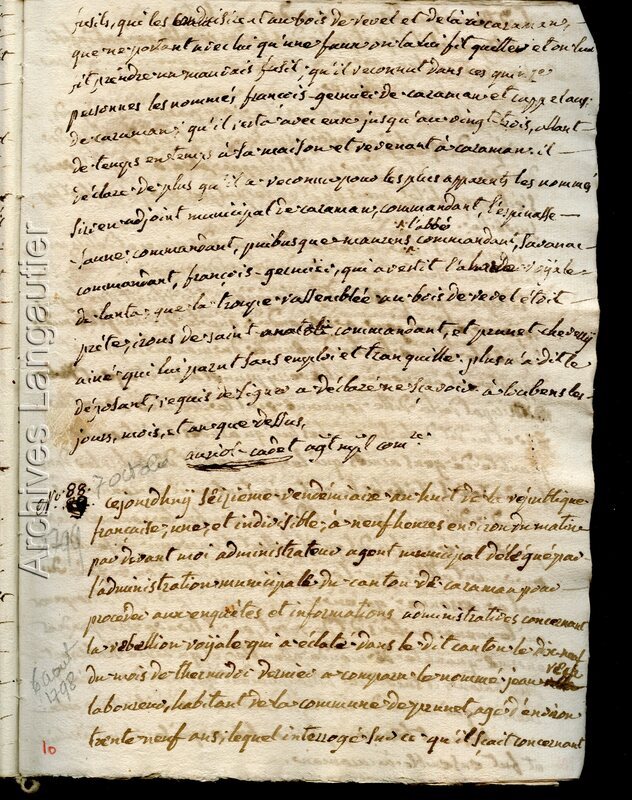 fusils, qui les conduisirent au bois de revel et de là à caraman,
que ne portant avec lui qu'une faux on la lui fit quitter et on lui
fit prendre un mauvais fusil; qu'il reconnut dans ces quinze
personnes les nommés françois-germier de caraman et
de caraman; qu'il resta avec eux jusqu'au vingt trois, allant
de temps en temps à sa maison et revenant à caraman. il
déclare de plus qu'il a reconnu pour les plus apparents les nommés
adjoint municipal de caraman, commandant, l'espinasse
l'abbé
saune commandant, puibusque maurens commandant, Savanac
commandant, françois-germier, qui avertit l'ahorde royale
de lanta, que la troupe rassemblée au bois de revel étoit
prête; de saint anatoli commandant, et prunet cheverry
ainé qui lui parut sans emploi et tranquille. plus n'a dit le
déposant; requis de signer a déclaré ne sçavoir. à loubens les
jours, mois, et an que dessus.
auriol-cadet agt mpl comre
No. 88. 7 octobre
cejourdhuy séizième vendémiaire an huit de la république
francaise, une, et indivisible, à neuf heures environ du matin
1799
par devant moi administrateur agent municipal délégué par
l'administration municipale du canton de caraman pour
procéder aux enquêtes et informations administratives concernant
la rebellion royale qui a éclaté dans le dit canton le dix neuf
6 aout
1798
du mois de thermidor dernier a comparu le nommé jean
laborere, habitant de la commune de prunet, agé d'environ
trente neuf ans; lequel interrogé sur ce qu'il scait concernant
10
Archives Langautier